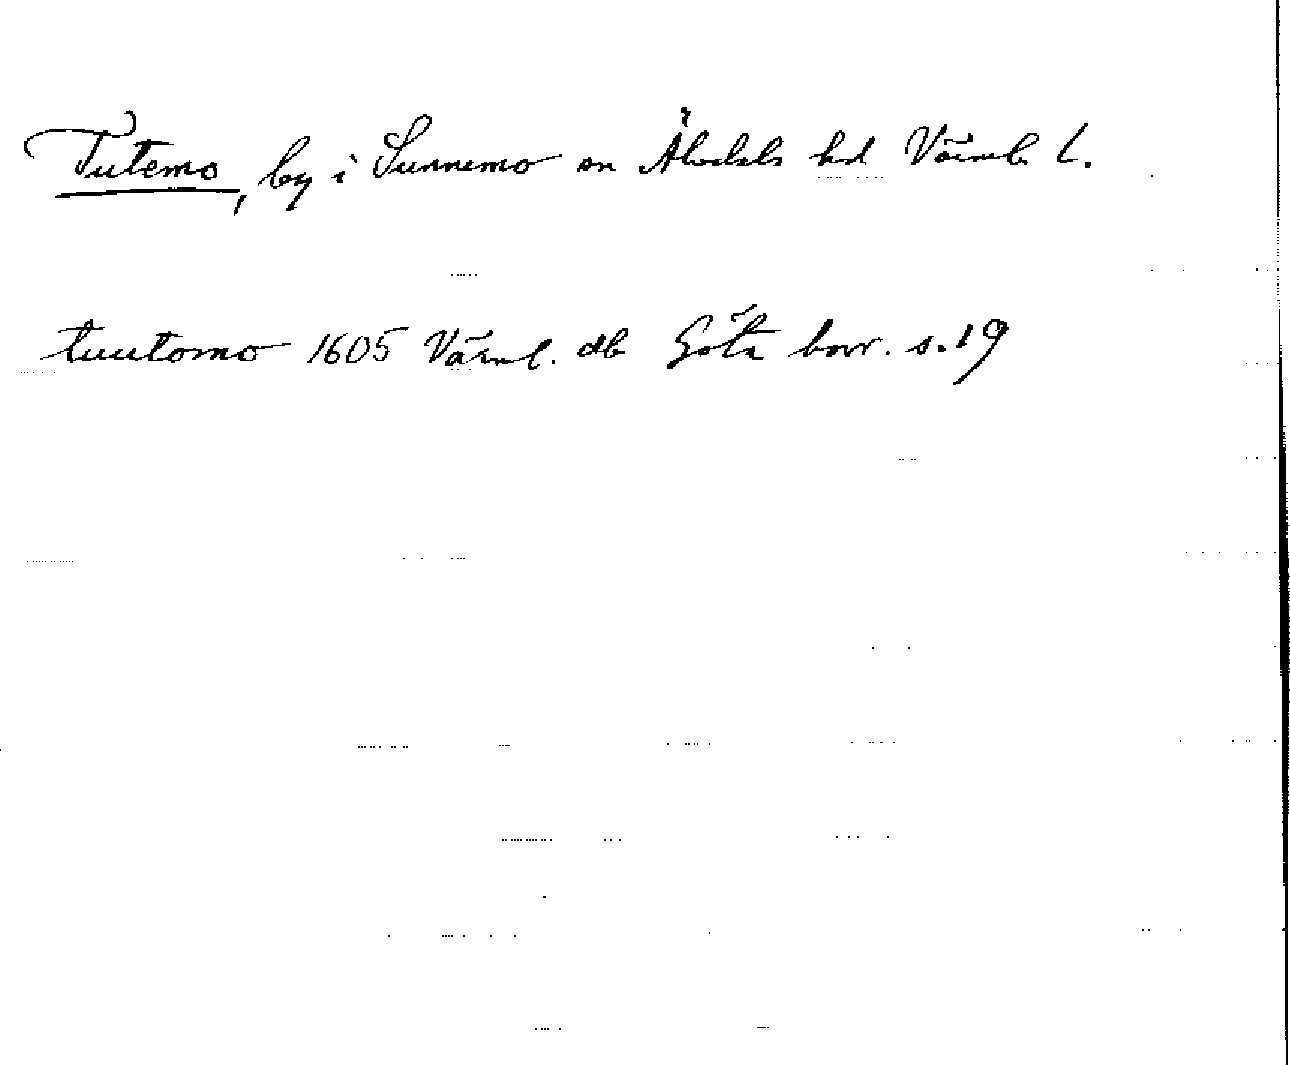 Tutemo, by i Sunnemo sn Älvdals hd Värml. l.
tuutomo 1605 Värml. db Göta hovr. s. 19